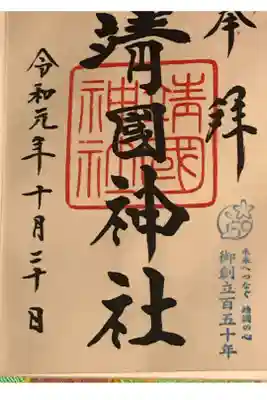 奉拝
未来へつなぐ 靖國の心
御創立百五十年
150
靖國神社
靖國
神社
令和元年十月二十日